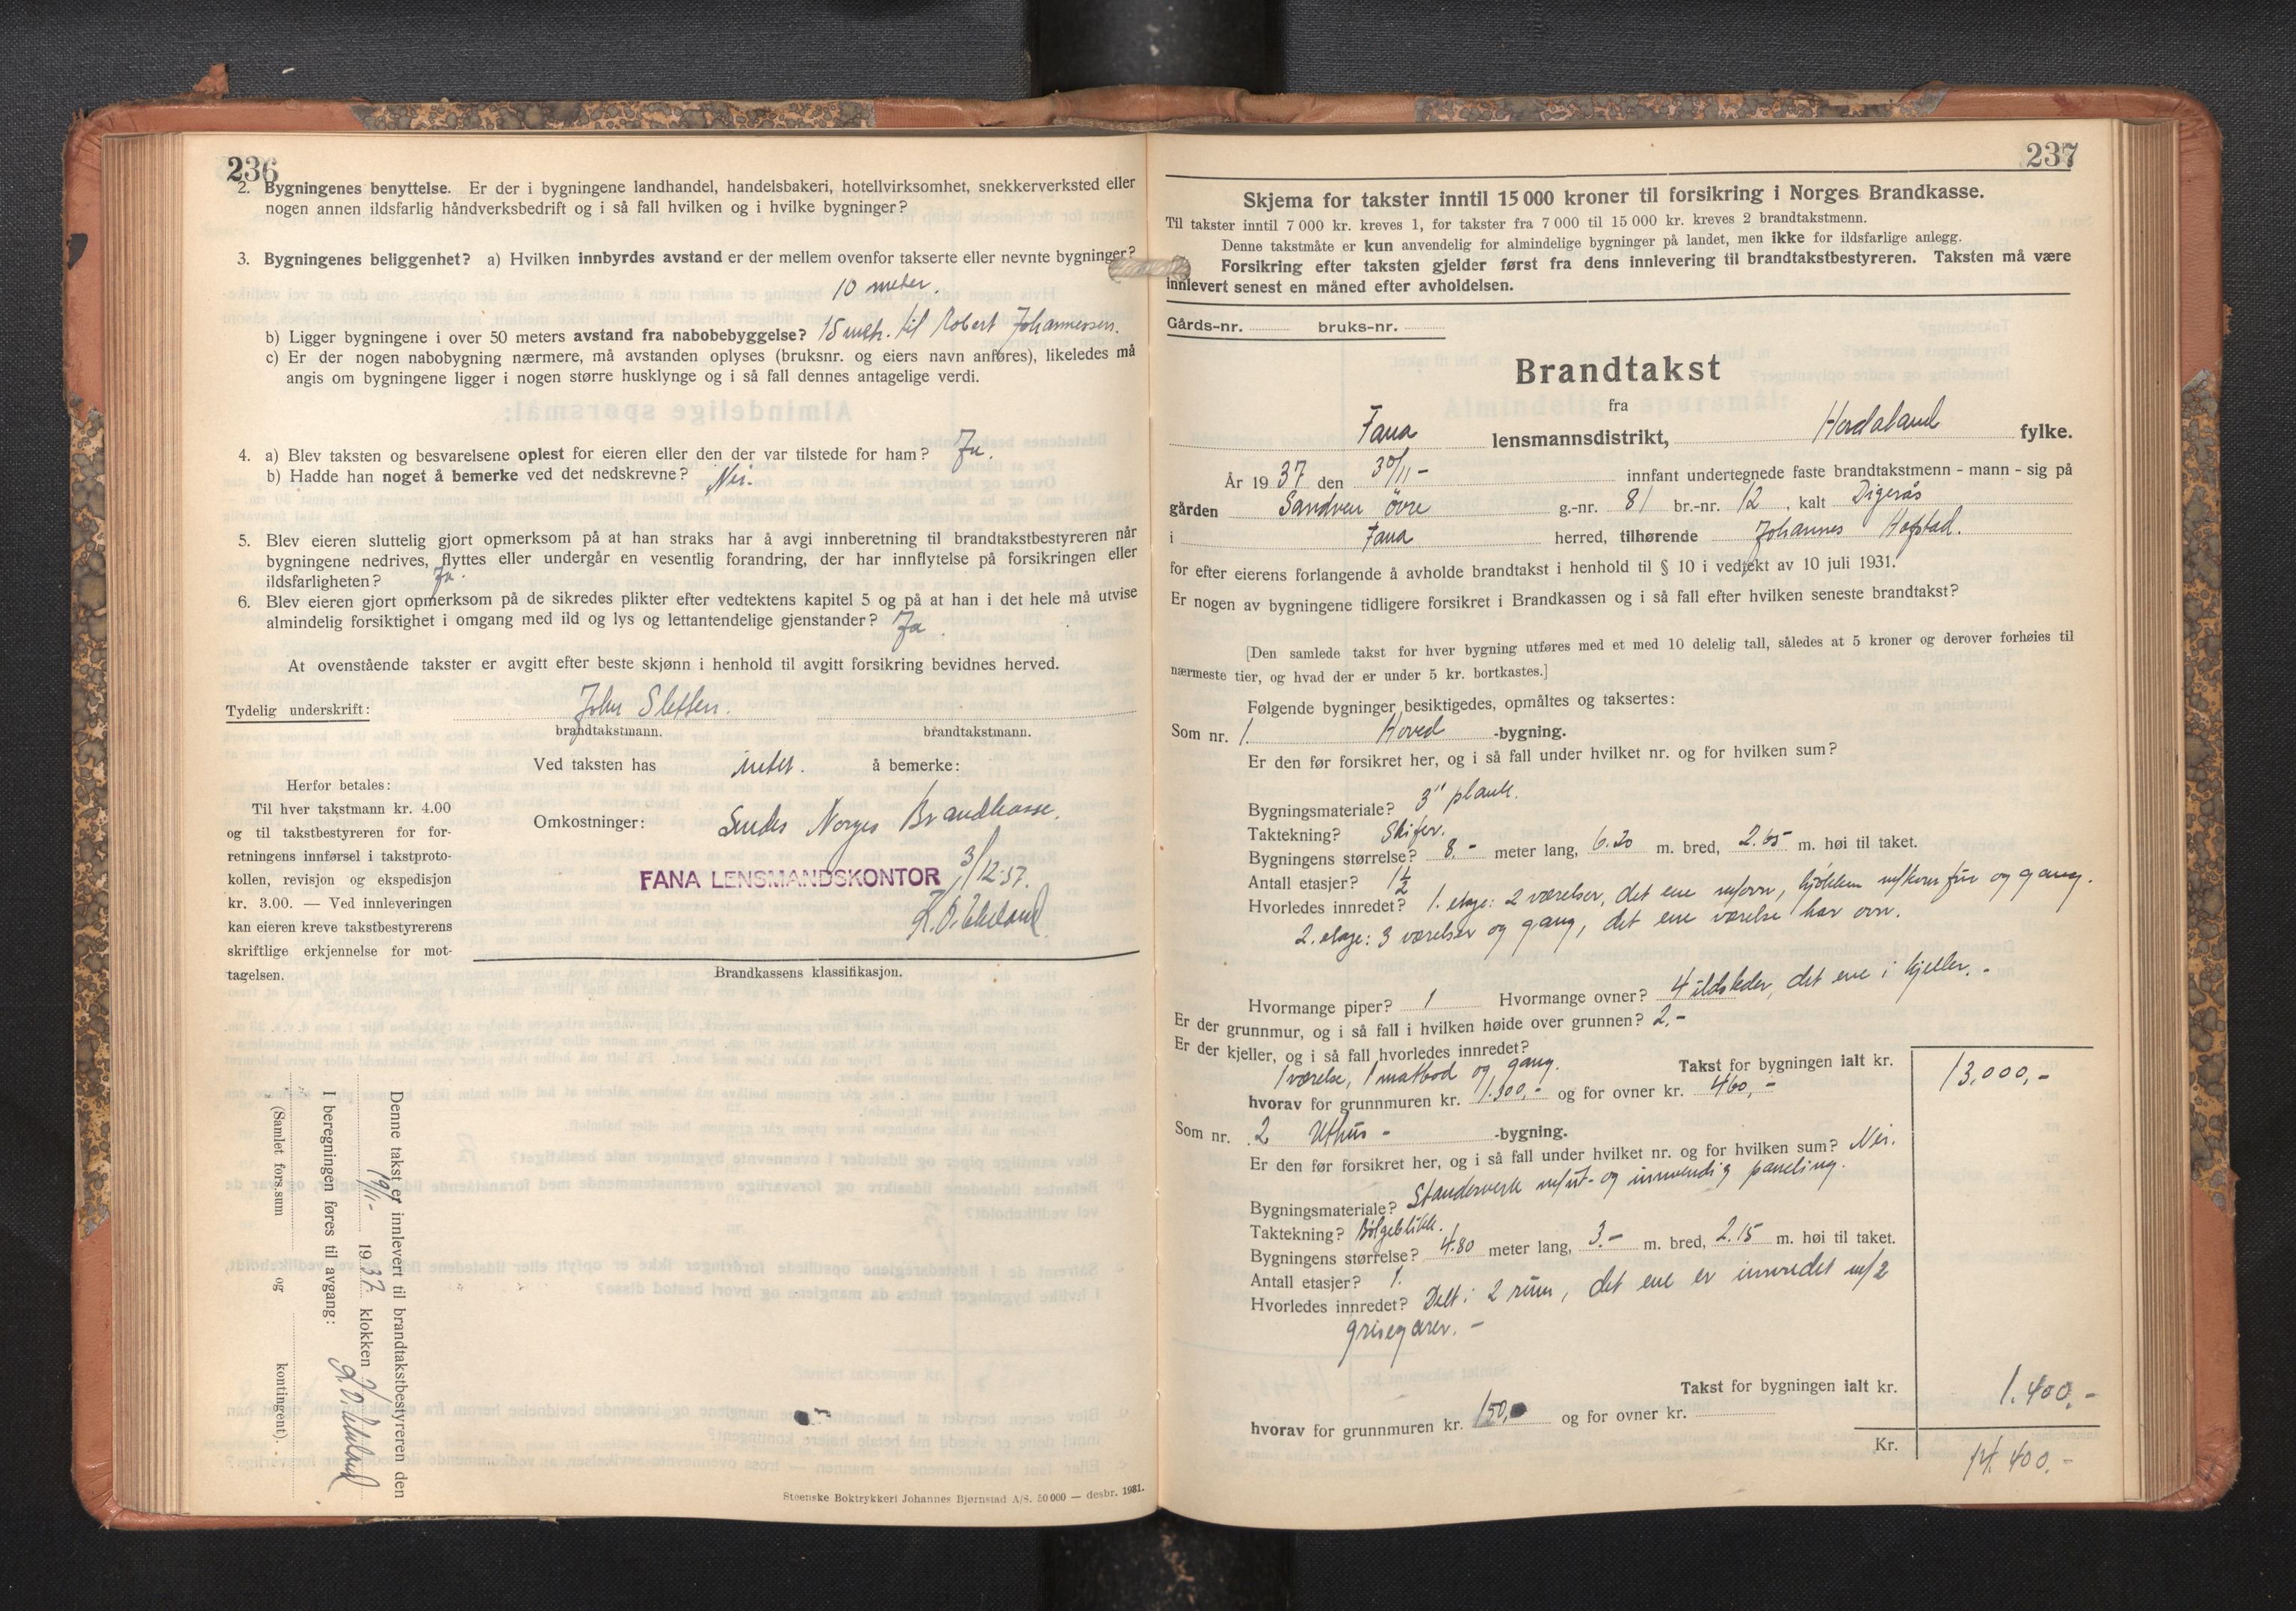 236
2. Bygningenes benyttelse. Er der i bygningene landhandel, handelsbakeri, hotellvirksomhet, snekkerverksted eller
nogen annen ildsfarlig håndverksbedrift og i så fall hvilken og i hvilke bygninger?
3. Bygningenes beliggenhet? a) Hvilken innbyrdes avstand er der mellem ovenfor takserte eller nevnte bygninger?
10 meter.
b) Ligger bygningene i over 50 meters avstand fra nabobebyggelse? 15 mtr. til Robert Johannessen.
c) Er der nogen nabobygning nærmere, må avstanden oplyses (bruksnr. og eiers navn anføres), likeledes må
angis om bygningene ligger i nogen større husklynge og i så fall dennes antagelige verdi.
4. a) Blev taksten og besvarelsene oplest for eieren eller den der var tilstede for ham? Ja.
b) Hadde han noget å bemerke ved det nedskrevne? Nei.
5. Blev eieren sluttelig gjort opmerksom på at han straks har å avgi innberetning til brandtakstbestyreren når
bygningene nedrives, flyttes eller undergår en vesentlig forandring, der har innflytelse på forsikringen eller
ildsfarligheten? Ja.
6. Blev eieren gjort opmerksom på de sikredes plikter efter vedtektens kapitel 5 og på at han i det hele må utvise
almindelig forsiktighet i omgang med ild og lys og lettantendelige gjenstander? Ja
At ovenstående takster er avgitt efter beste skjønn i henhold til avgitt forsikring bevidnes herved.
Tydelig underskrift: John Sletten.
brandtakstmann. brandtakstmann.
Ved taksten has intet. å bemerke:
Herfor betales:
Til hver takstmann kr. 4.00
og til takstbestyreren for for-
retningens innførsel i takstproto-
kollen, revisjon og ekspedisjon
kr. 3.00. — Ved innleveringen
kan eieren kreve takstbestyrerens
skriftlige erkjennelse for mot-
tagelsen.
Omkostninger: Sendes Norges Brandkasse.
FANA LENSMANDSKONTOR 3/12.37.
Brandkassens klassifikasjon.
Denne takst er innlevert til brandtakstbestyreren den
19/11- 1937. klokken
I beregningen føres til avgang:
(Samlet fors.sum og kontingent).
Steenske Boktrykkeri Johannes Bjørnstad A/S. 50 000 — desbr. 1931.
237
Skjema for takster inntil 15 000 kroner til forsikring i Norges Brandkasse.
Til takster inntil 7 000 kr. kreves 1, for takster fra 7 000 til 15 000 kr. kreves 2 brandtakstmenn.
Denne takstmåte er kun anvendelig for almindelige bygninger på landet, men ikke for ildsfarlige anlegg.
Forsikring efter taksten gjelder først fra dens innlevering til brandtakstbestyreren. Taksten må være
innlevert senest en måned efter avholdelsen.
Gårds-nr. bruks-nr.
Brandtakst
fra
Fana lensmannsdistrikt, Hordaland fylke.
År 1937 den 30/11 - innfant undertegnede faste brandtakstmenn - mann - sig på
gården Sandven övre g.-nr. 81 br.-nr. 12, kalt Digerås
i Fana herred, tilhørende Johannes Hopstad.
for efter eierens forlangende å avholde brandtakst i henhold til § 10 i vedtekt av 10 juli 1931.
Er nogen av bygningene tidligere forsikret i Brandkassen og i så fall efter hvilken seneste brandtakst?
[Den samlede takst for hver bygning utføres med et med 10 delelig tall, således at 5 kroner og derover forhøies til
nærmeste tier, og hvad der er under 5 kr. bortkastes.]
Følgende bygninger besiktigedes, opmåltes og taksertes:
Som nr. 1. Hoved -bygning.
Er den før forsikret her, og i så fall under hvilket nr. og for hvilken sum?
Bygningsmateriale? 3" plank.
Taktekning? Skifer.
Bygningens størrelse? 8.- meter lang, 6.20 m. bred, 2.65 m. høi til taket.
Antall etasjer? 1½
Hvorledes innredet? 1. etage: 2 værelser, det ene m/ovn, kjøkken m/komfür og gang.
2. etage: 3 værelser og gang, det ene værelse har ovn.
Hvormange piper? 1 Hvormange ovner? 4 ildsteder, det ene i kjeller. -
Er der grunnmur, og i så fall i hvilken høide over grunnen? 2.-
Er der kjeller, og i så fall hvorledes innredet?
1 værelse, 1 matbod og gang. Takst for bygningen ialt kr. 13.000,-
hvorav for grunnmuren kr. 1.300,- og for ovner kr. 460,-
Som nr. 2 Uthüs - -bygning.
Er den før forsikret her, og i så fall under hvilket nr. og for hvilken sum? Nei.
Bygningsmateriale? Standerverk m/üt- og innvendig paneling.
Taktekning? Bölgeblikk.
Bygningens størrelse? 4.80 meter lang, 3.- m. bred, 2.15 m. høi til taket.
Antall etasjer? 1.
Hvorledes innredet? Delt i 2 rüm, det ene er innredet m/2
grisegarer. -
Takst for bygningen ialt kr. 1.400,-
hvorav for grunnmuren kr. 150, og for ovner kr.
Kr. 14.400.-